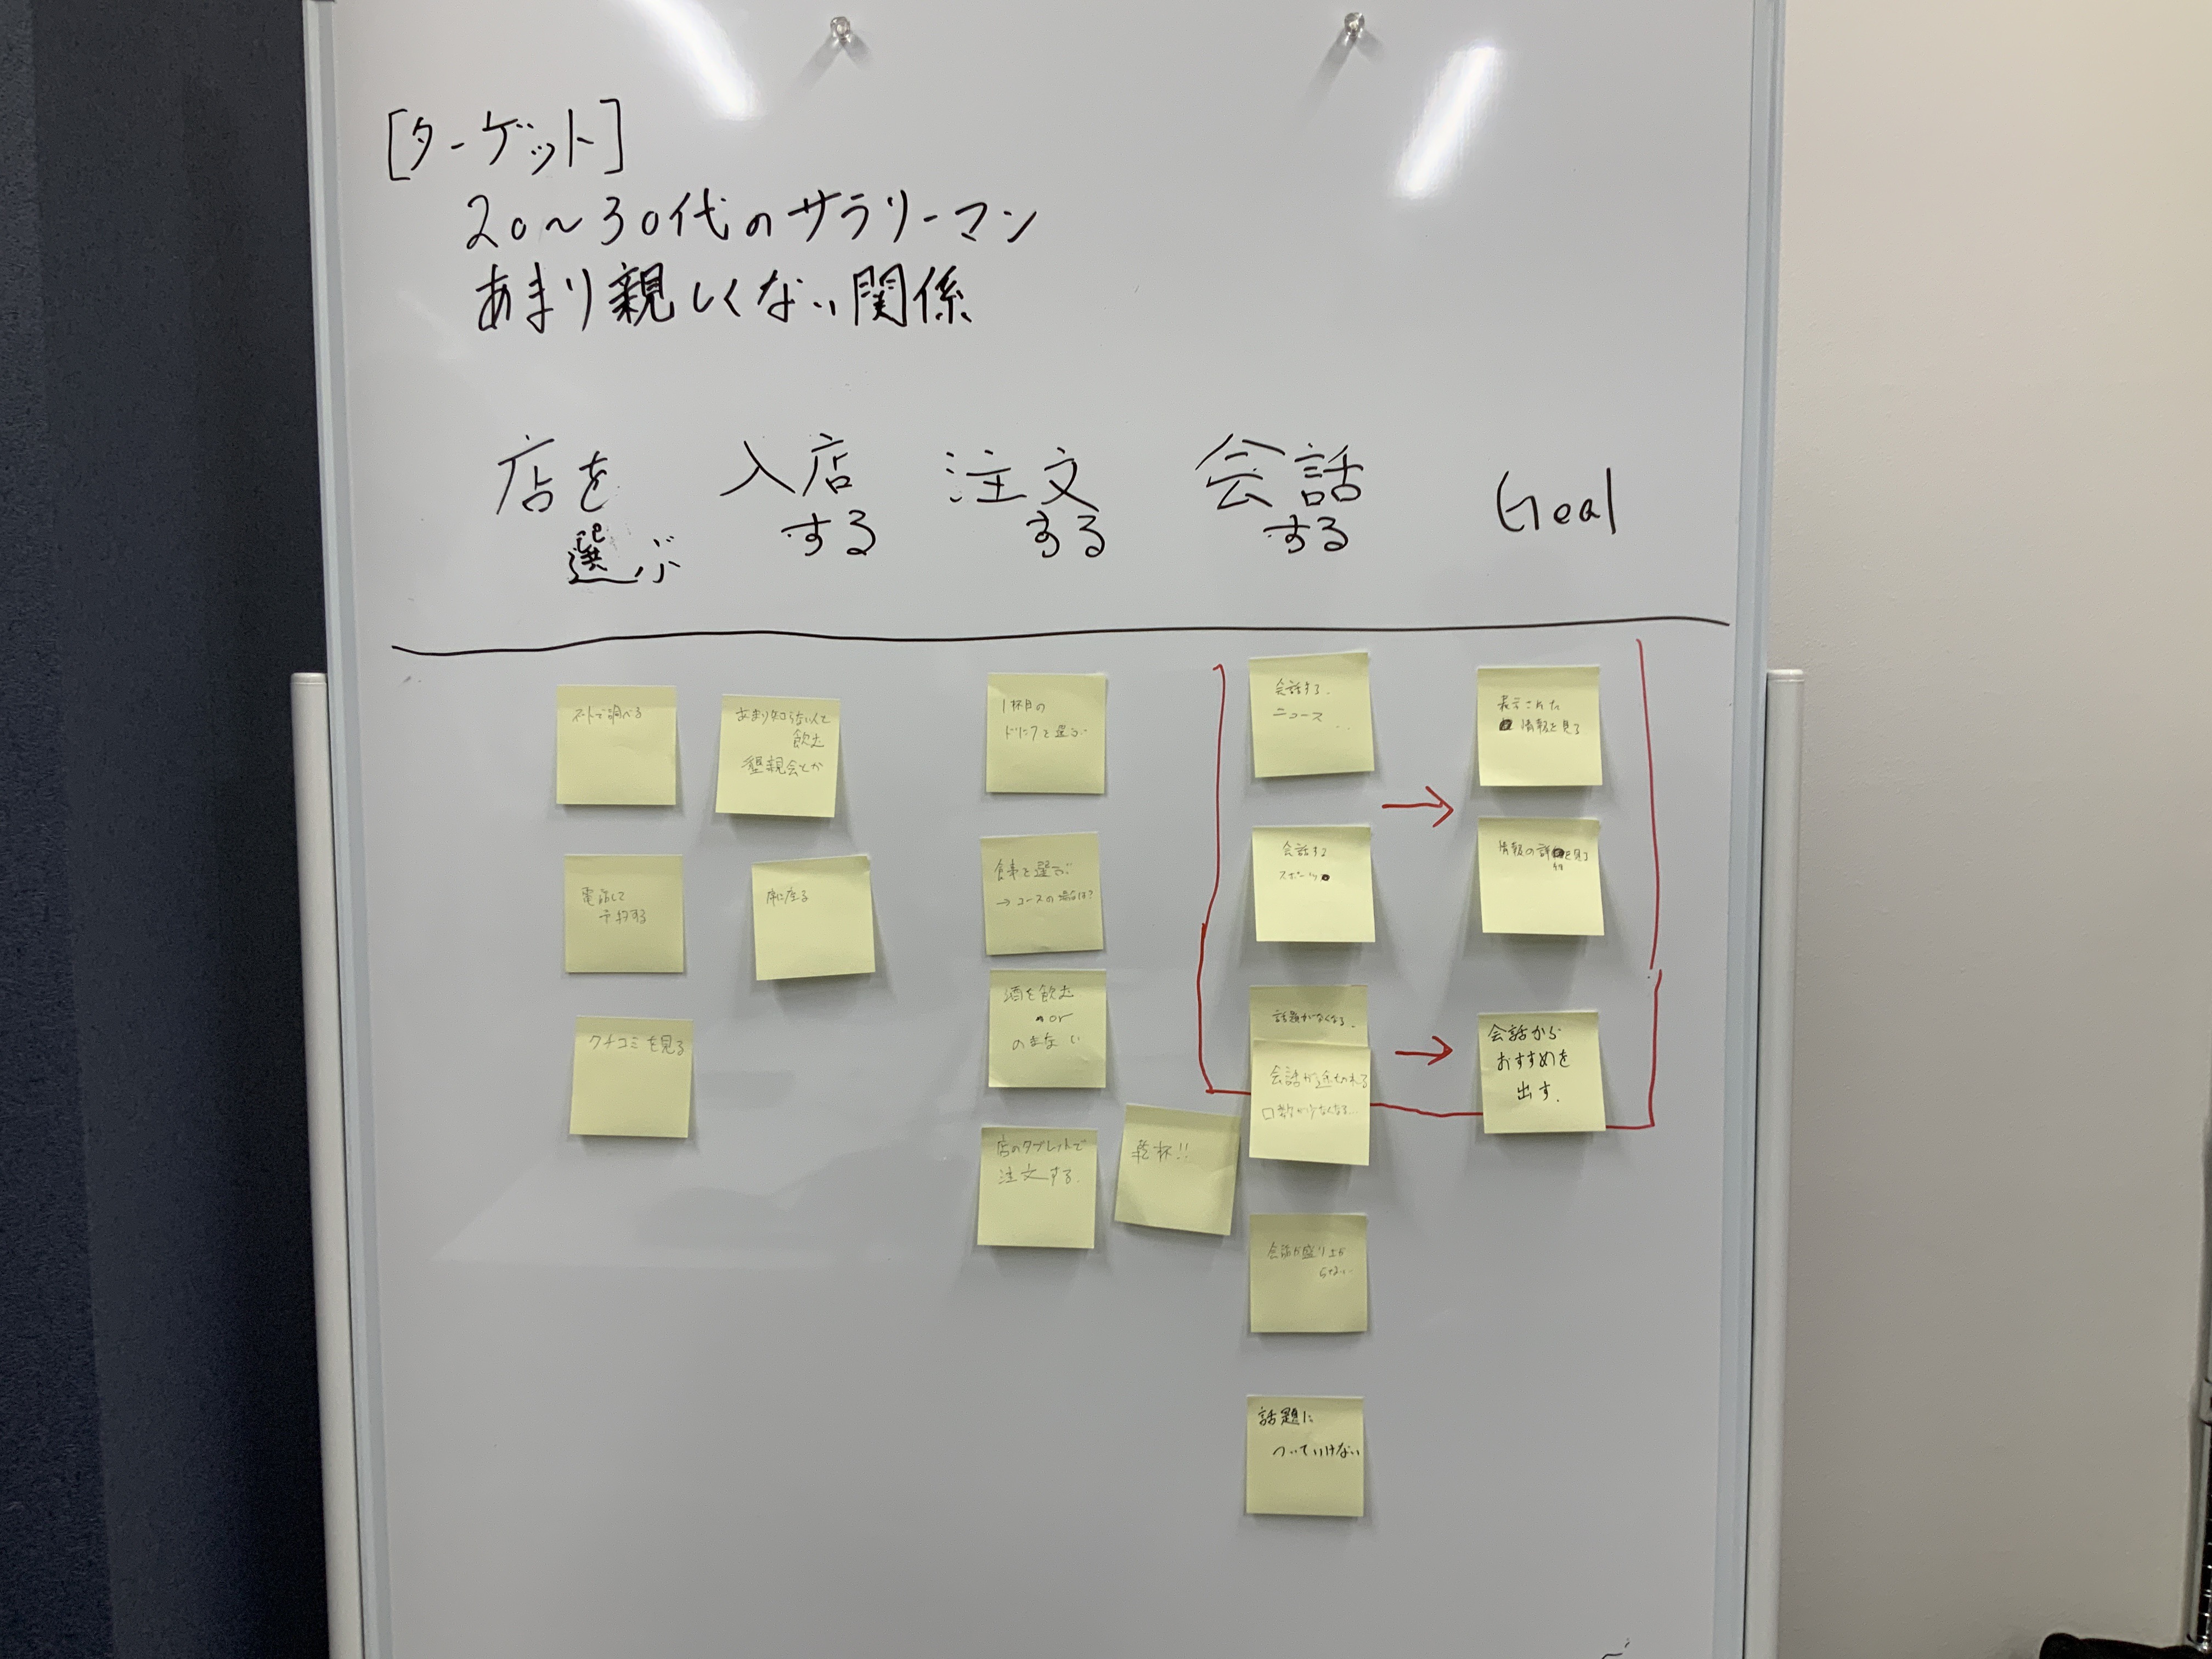 [ターゲット]
20〜30代のサラリーマン
あまり親しくない関係
店を
選ぶ
入店
する
注文
する
会話
する
Goal
ネットで調べる
電話して
予約する
クチコミを見る
あまり知らない人と
飲む
懇親会とか
席に座る
1杯目の
ドリンクを選ぶ
食事を選ぶ
→コースの場合は?
酒を飲む
or
のまない
店のタブレットで
注文する.
乾杯!!
会話する.
ニュース
...
会話する
スポーツ
話題がなくなる.
会話が途切れる
口数が少なくなる...
会話が盛り上が
らない
話題に
ついていけない
表示された
情報を見る
情報の詳細を見る
会話から
おすすめを
出す.